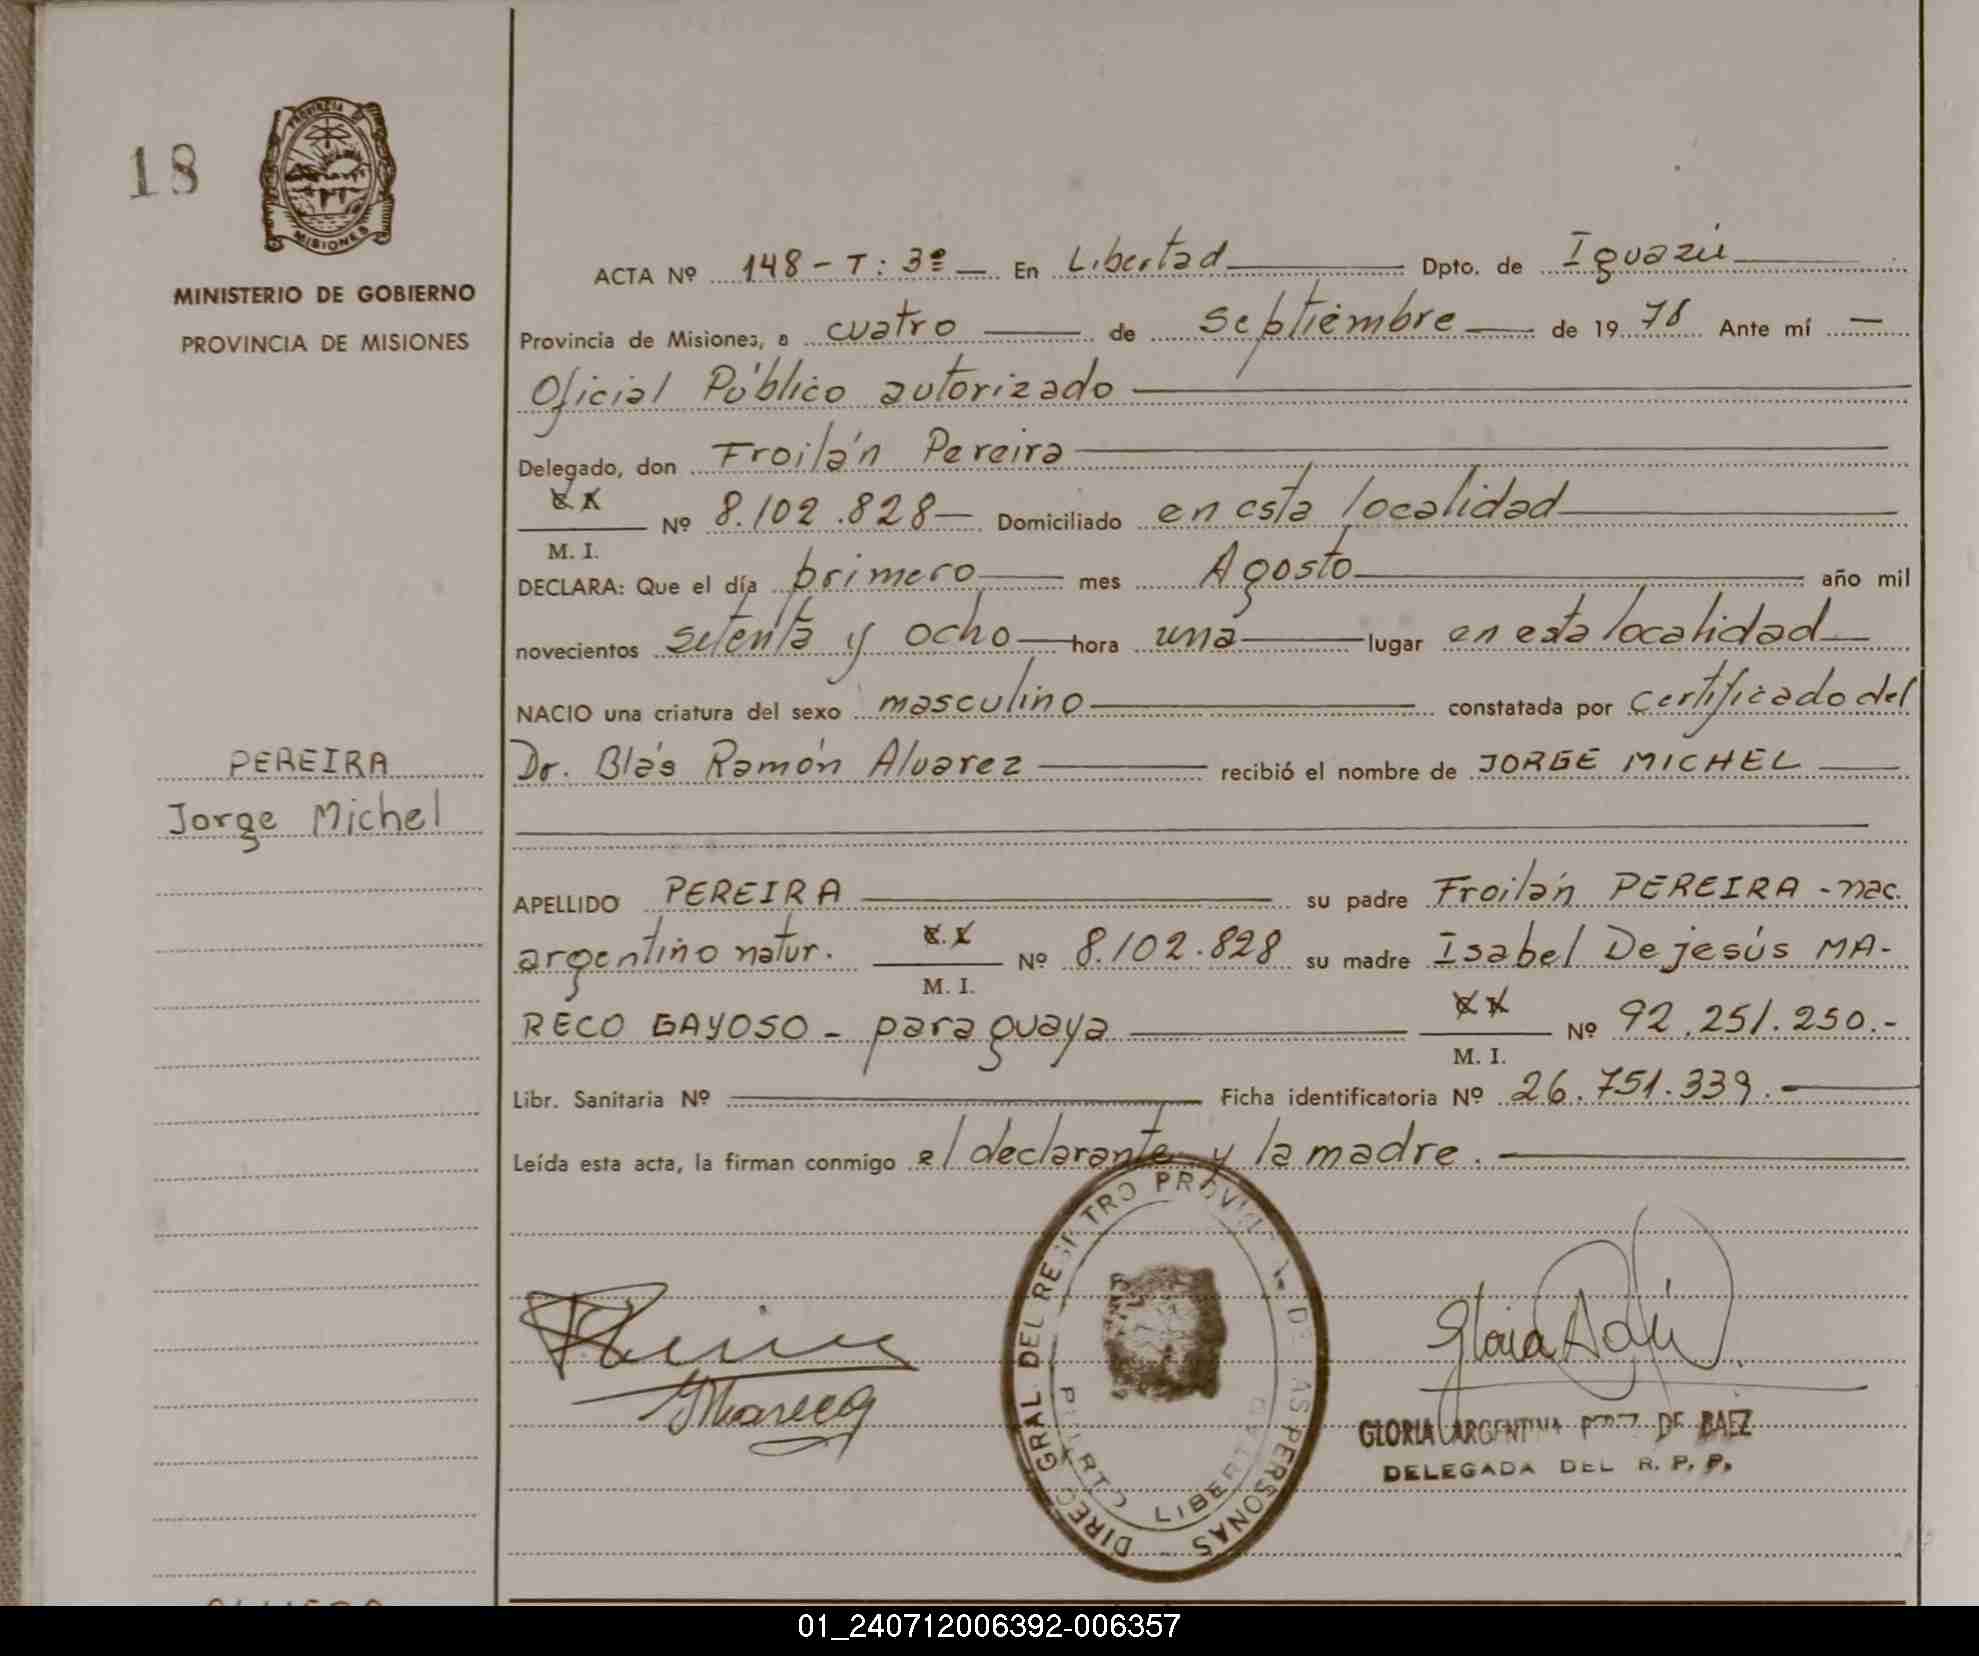 18
PROVINCIA DE
MISIONES
MINISTERIO DE GOBIERNO
PROVINCIA DE MISIONES
PEREIRA
Jorge Michel
ACTA Nº 148 - T: 3º — En Libertad Dpto. de Iguazú
Provincia de Misiones, a cuatro de septiembre de 19 78 Ante mí —
Oficial Público autorizado
Delegado, don Froilán Pereira
M. I. Nº 8.102.828 — Domiciliado en esta localidad
DECLARA: Que el día primero mes Agosto año mil
novecientos setenta y ocho hora una lugar en esta localidad
NACIO una criatura del sexo masculino constatada por certificado del
Dr. Blás Ramón Alvarez recibió el nombre de JORGE MICHEL
APELLIDO PEREIRA su padre Froilán PEREIRA - nac.
argentino natur. M. I. Nº 8.102.828 su madre Isabel De jesús MA-
RECO GAYOSO - paraguaya M. I. Nº 92.251.250.-
Libr. Sanitaria Nº Ficha identificatoria Nº 26.751.339.-
Leída esta acta, la firman conmigo el declarante y la madre.
DIREC. GRAL. DEL REGISTRO PROVINCIAL DE LAS PERSONAS
PUERTO LIBERTAD
GLORIA ARGENTINA DE BAEZ
DELEGADA DEL R. P. P.
01_240712006392-006357